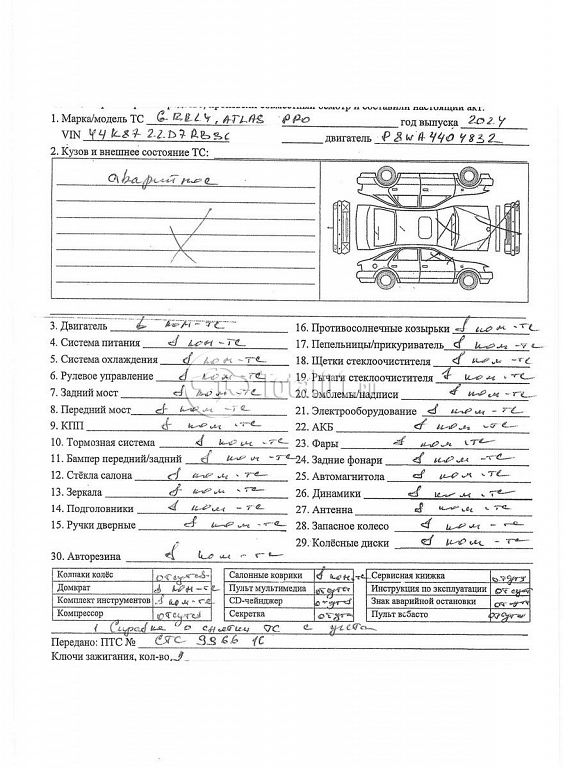 составили настоящий акт.
1. Марка/модель ТС GEELY, ATLAS PRO год выпуска 2024
VIN двигатель
2. Кузов и внешнее состояние ТС:
аварийное
3. Двигатель в ком-те 16. Противосолнечные козырьки в ком-те
4. Система питания в ком-те 17. Пепельницы/прикуриватель в ком-те
5. Система охлаждения в ком-те 18. Щетки стеклоочистителя в ком-те
6. Рулевое управление в ком-те 19. Рычаги стеклоочистителя в ком-те
7. Задний мост в ком-те 20. Эмблемы/надписи в ком-те
8. Передний мост в ком-те 21. Электрооборудование в ком-те
9. КПП в ком-те 22. АКБ в ком-те
10. Тормозная система в ком-те 23. Фары в ком-те
11. Бампер передний/задний в ком-те 24. Задние фонари в ком-те
12. Стёкла салона в ком-те 25. Автомагнитола в ком-те
13. Зеркала в ком-те 26. Динамики в ком-те
14. Подголовники в ком-те 27. Антенна в ком-те
15. Ручки дверные в ком-те 28. Запасное колесо в ком-те
29. Колёсные диски в ком-те
30. Авторезина в ком-те
Колпаки колёс Салонные коврики в ком-те Сервисная книжка
Домкрат в ком-те Пульт мультимедиа Инструкция по эксплуатации
Комплект инструментов в ком-те CD-чейнджер Знак аварийной остановки
Компрессор отсутств Секретка Пульт вебасто
1 Справка о снятии ТС с учета
Передано: ПТС № СТС 9966
Ключи зажигания, кол-во,